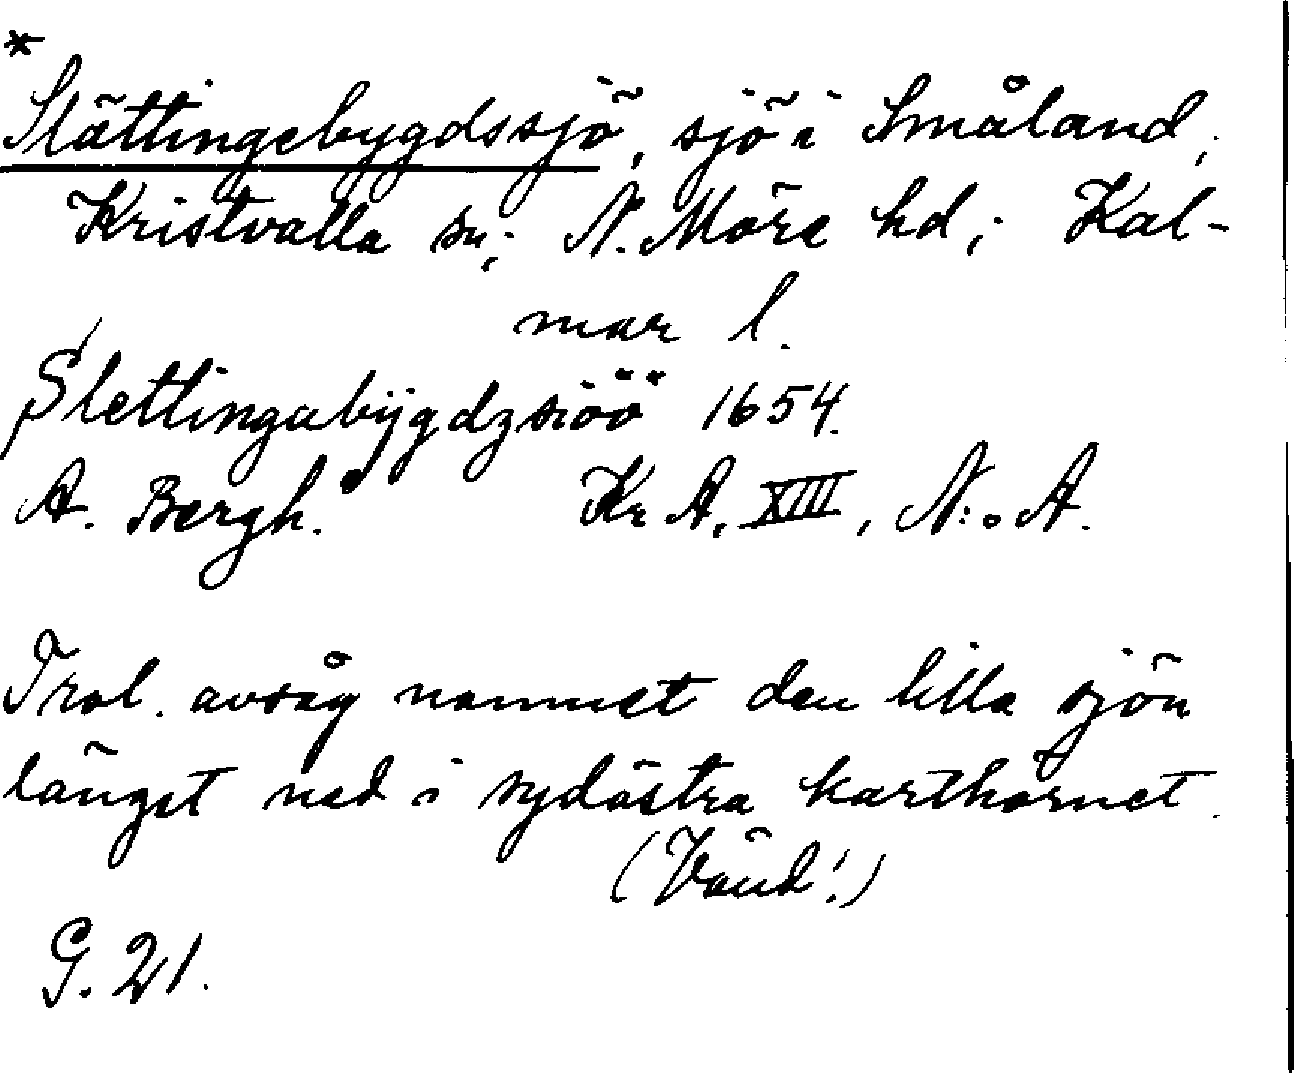 *
Slättingebygdssjö, sjö i Småland,
Kristvalla sn; N. Möre hd; Kal-
mar l.
Slettingabÿgdzsiöö 1654.
A. Bergh. Kr A. XIII, N:o A.
Trol. avsåg namnet den lilla sjön
längst ned i sydöstra karthörnet.
(Vänd!)
G. 21.